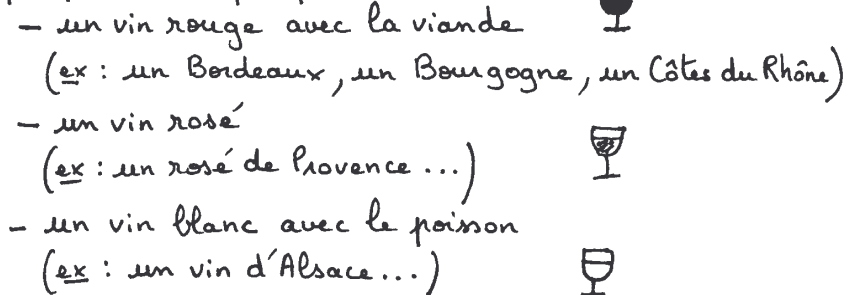 - un vin rouge avec la viande
(ex : un Bordeaux, un Bourgogne, un Côtes du Rhône)
- un vin rosé
(ex : un rosé de Provence ...)
- un vin blanc avec le poisson
(ex : un vin d'Alsace...)